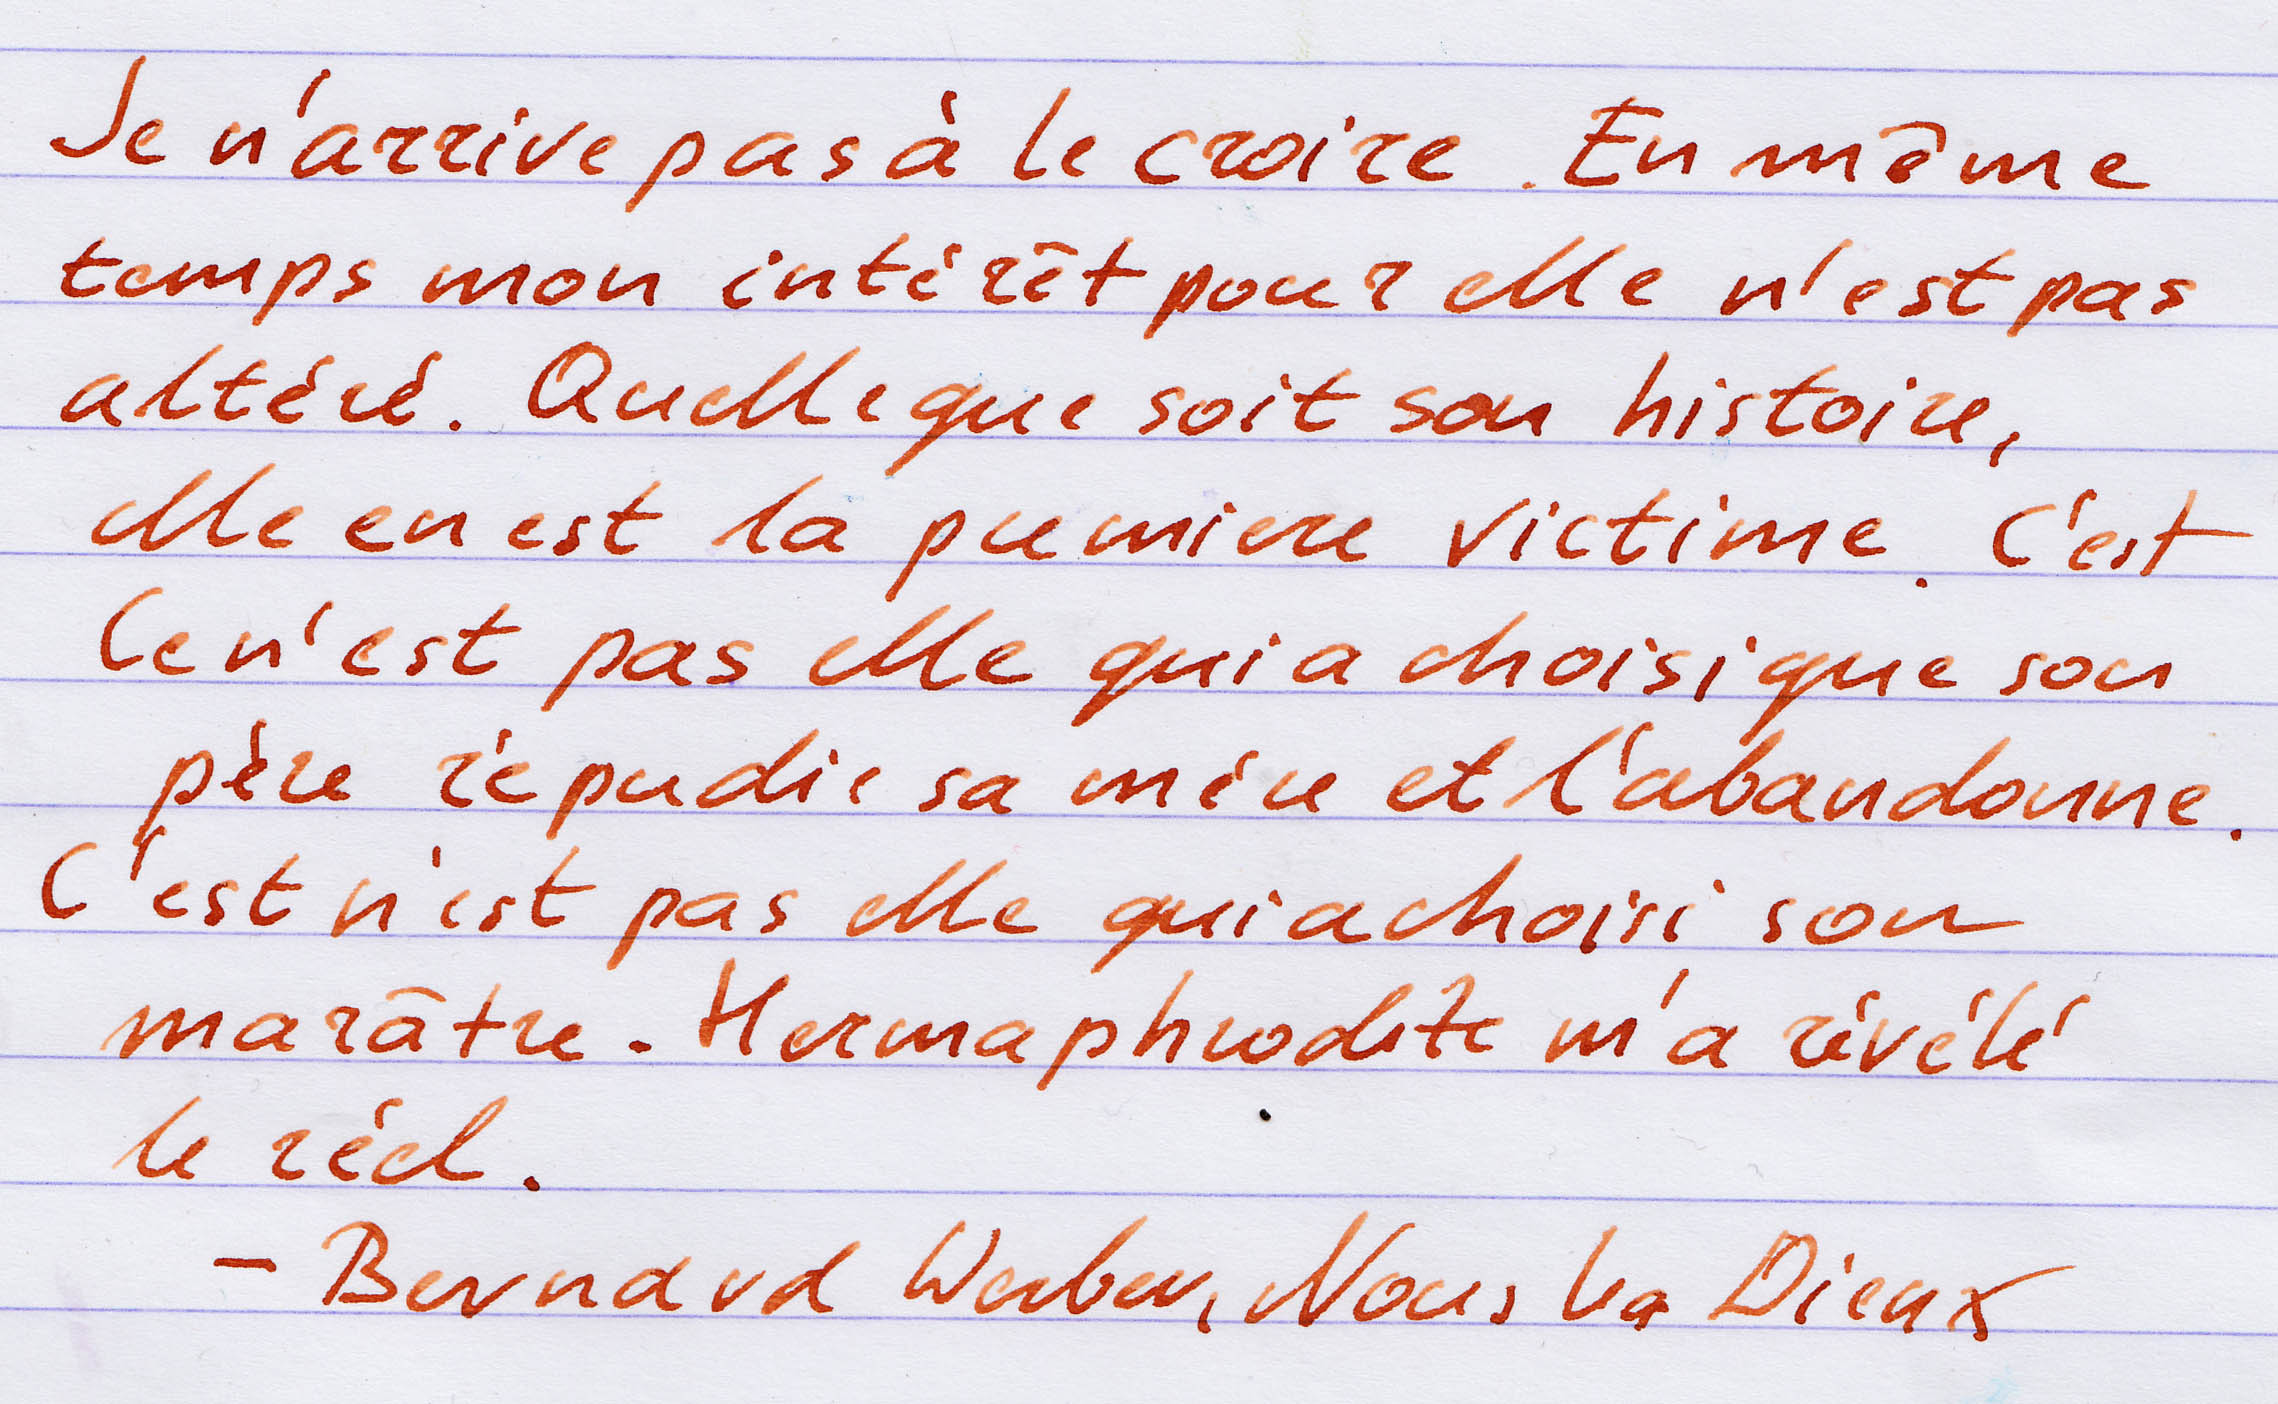 Je n'arrive pas à le croire. En même
temps mon intérêt pour elle n'est pas
altéré. Quelle que soit son histoire,
elle en est la premiere victime. C'est
Ce n'est pas elle qui a choisi que son
père répudie sa mére et l'abandonne.
C'est n'est pas elle qui a choisi son
marâtre. Hermaphrodite m'a révélé
le réel.
- Bernard Werber, Nous les Dieux